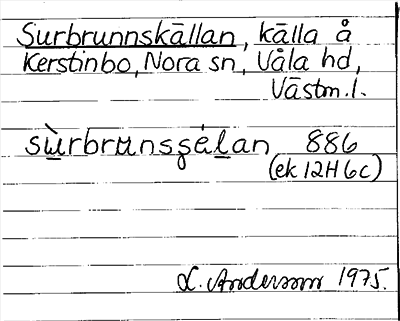 Surbrunnskällan, källa å
Kerstinbo, Nora sn, Våla hd,
Västm.l.
sùrbrunsʂɛ́lan 886
(ek 12H6c)
L. Andersson 1975.